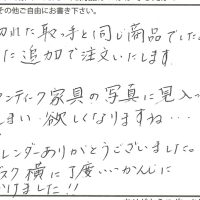 その他ご自由にお書き下さい。
切れた取っ手と同じ商品でした
た追加で注文いたします
ンティーク家具の写真に見入っ
しまい欲しくなりますね…
レンダーありがとうございました。
スク横に丁度いいかんじに
けました!!